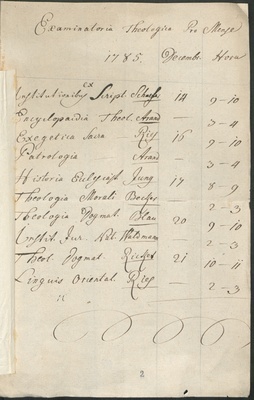 Examinatoria Theologica Pro Mense
1785. Decembr. Hora
ex
Institutionibus Script Schaefer 14 9-10
Encyclopaidia Theol. Arand — 3-4
Exegetica Sacra Ries 16 9-10
Patrologia Arand — 3-4
Historia Eccles. Jung 17 8-9
Theologia Morali Becker — 2-3
Theologia Dogmat. Blau 20 9-10
Instit. Jur. Nat. — 2-3
Theol. Dogmat. 21 10-11
Linguis Oriental. Ries — 2-3
2